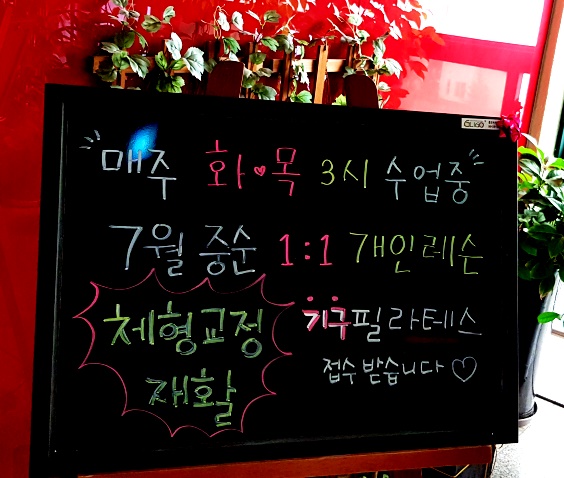 "매주 화♥목 3시 수업중"
7월 중순 1:1 개인레슨
체형교정
재활
기구필라테스
접수 받습니다♡